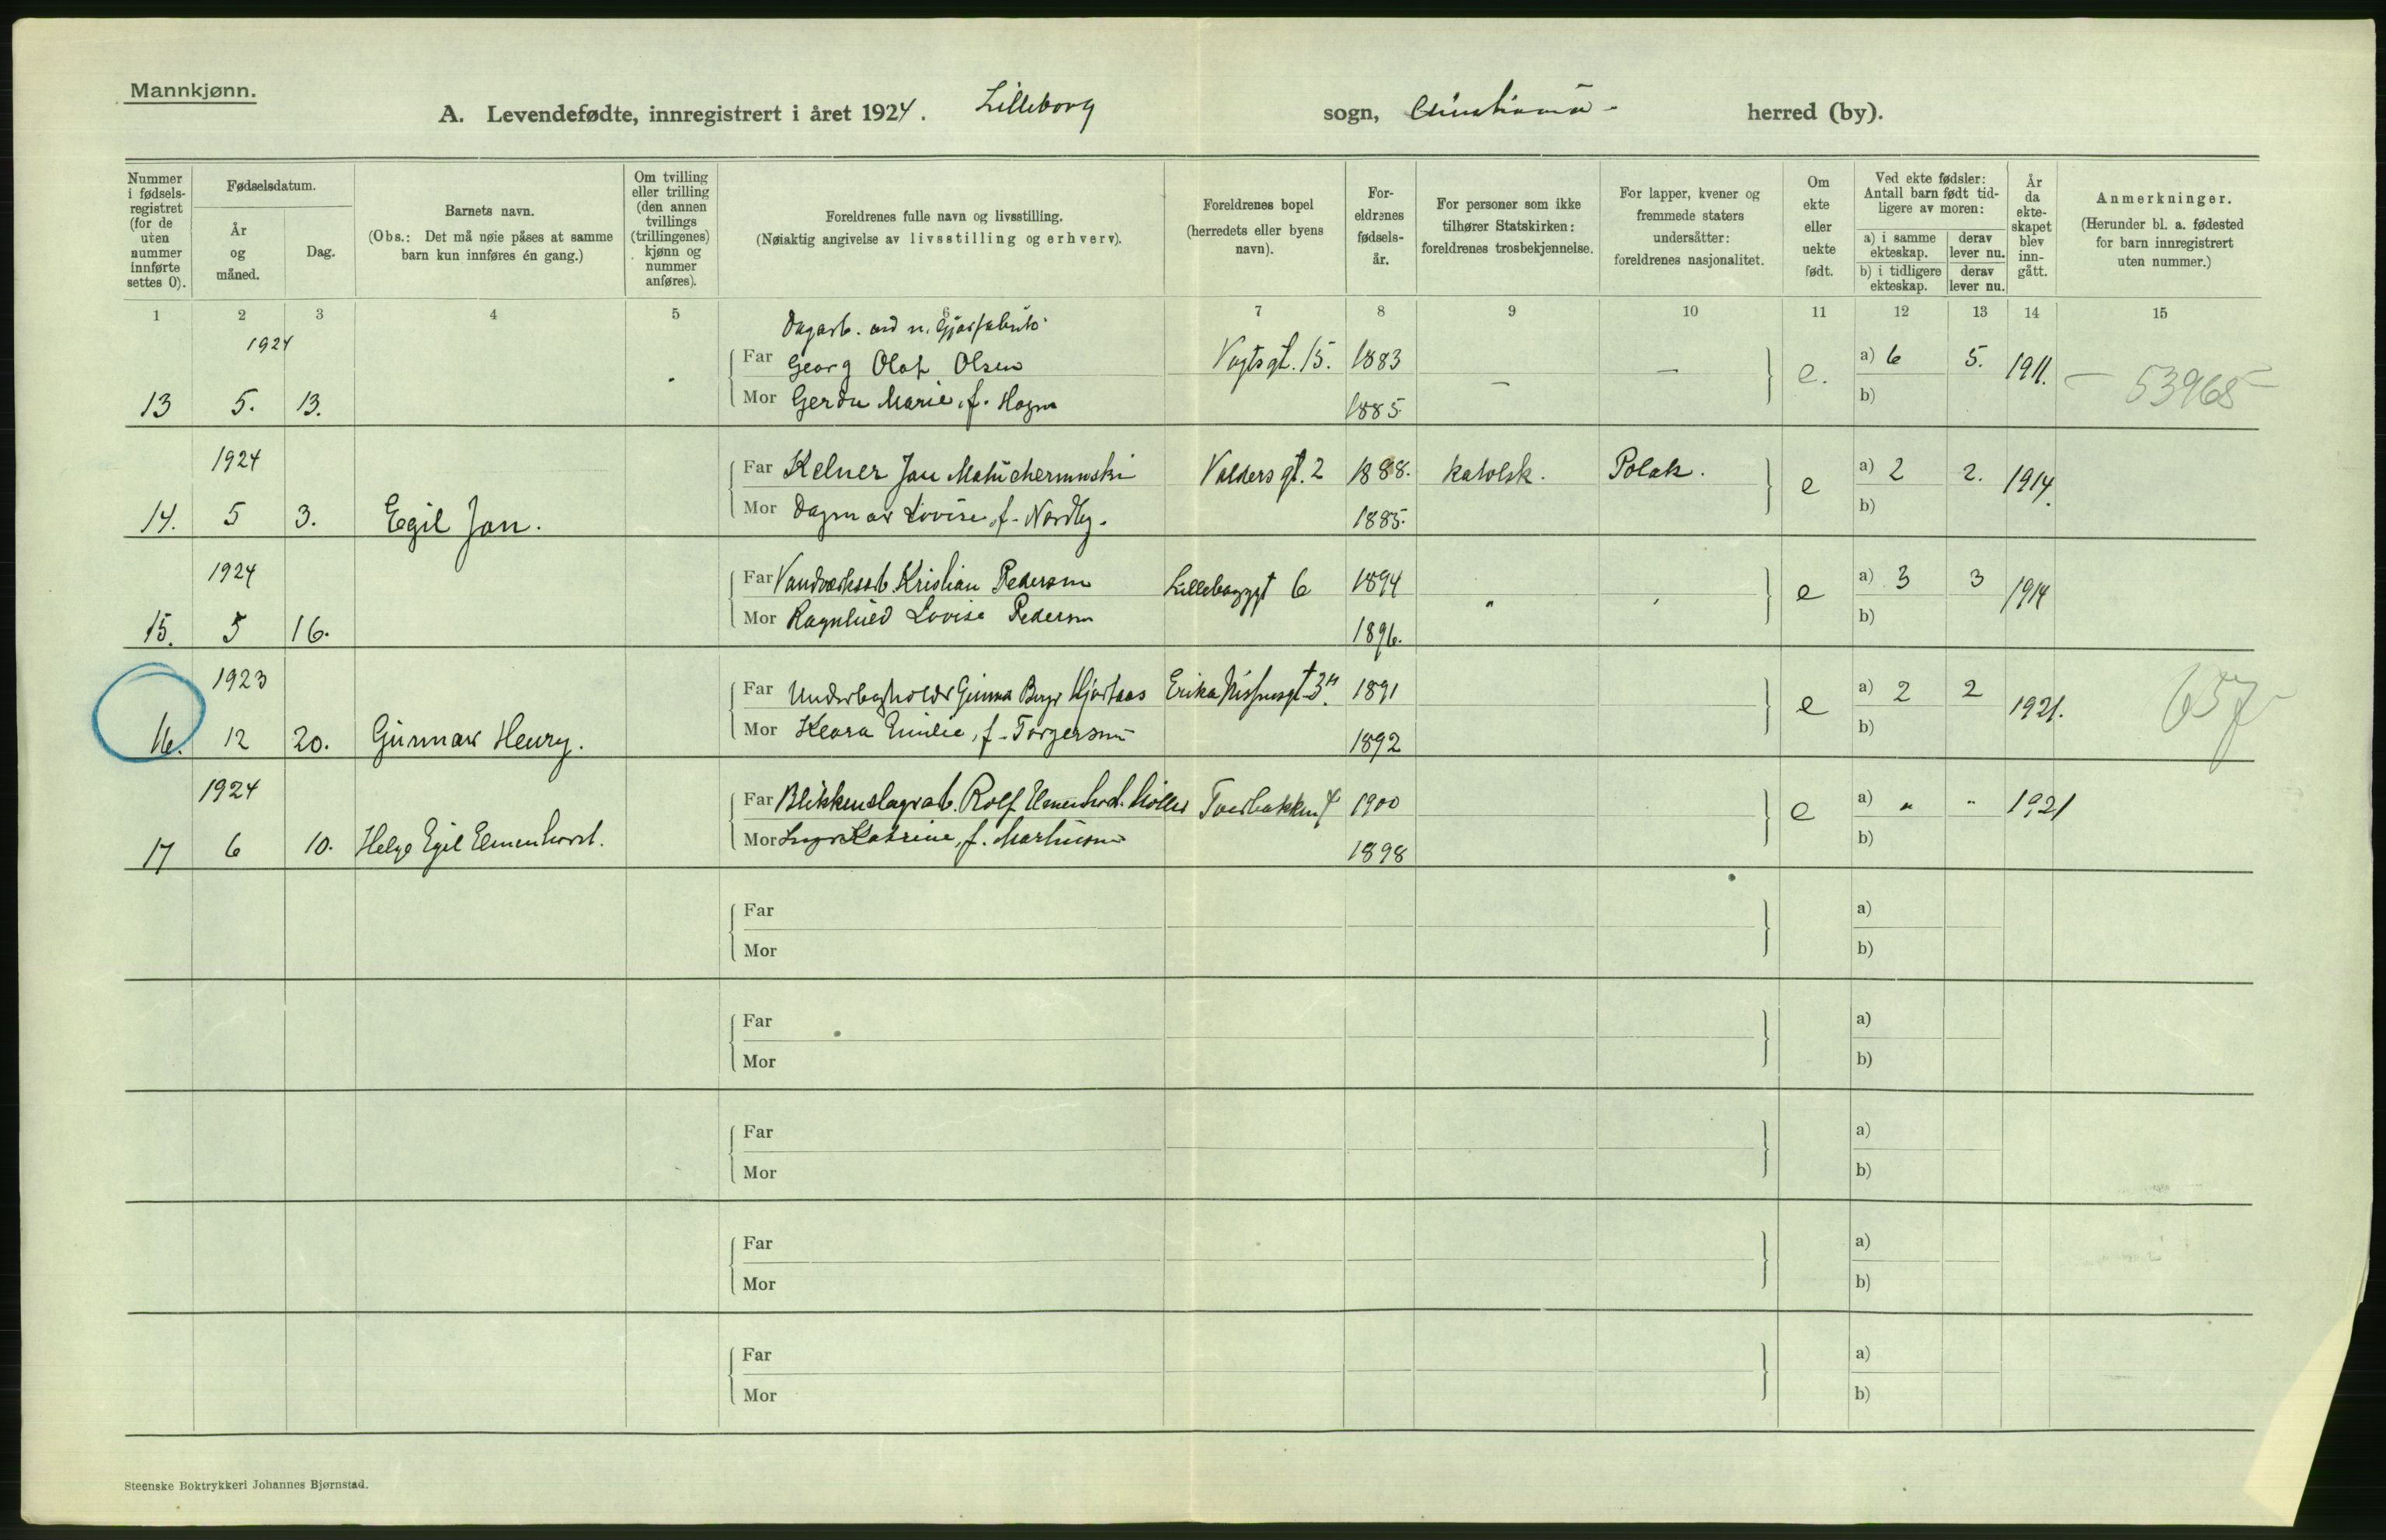 Mannkjønn.
A. Levendefødte, innregistrert i året 1924. Lilleborg sogn, herred (by).
Nummer i fødsels-registret (for de uten nummer innførte settes 0).
Fødselsdatum.
År og måned.
Dag.
Barnets navn.
(Obs.: Det må nøie påses at samme barn kun innføres én gang.)
Om tvilling eller trilling (den annen tvillings (trillingenes) kjønn og nummer anføres).
Foreldrenes fulle navn og livsstilling.
(Nøiaktig angivelse av livsstilling og erhverv).
Foreldrenes bopel (herredets eller byens navn).
For-eldrenes fødsels-år.
For personer som ikke tilhører Statskirken: foreldrenes trosbekjennelse.
For lapper, kvener og fremmede staters undersåtter: foreldrenes nasjonalitet.
Om ekte eller uekte født.
Ved ekte fødsler: Antall barn født tid-ligere av moren:
a) i samme ekteskap. derav lever nu.
b) i tidligere ekteskap. derav lever nu.
År da ekte-skapet blev inn-gått.
Anmerkninger.
(Herunder bl. a. fødested for barn innregistrert uten nummer.)
1 2 3 4 5 6 7 8 9 10 11 12 13 14 15
1924
Far Georg Olaf Olsen Vogtsgt. 15. 1883 — — e. a) 6 5. 1911. - 53965 -
13 5. 13. Mor Gerda Marie, f. 1885. b)
1924
Far Kelner Jan Valdersgt. 2 1888. katolsk. Polak. e a) 2 2. 1914.
14. 5 3. Egil Jan. Mor Dagmar Lovise, f. Nordby. 1885. b)
1924
Far Kristian Pedersen 6 1894 " e a) 3 3 1914
15. 5 16. Mor Ragnhild Lovise Pedersen 1896. b)
1923
Far 1891 e a) 2 2 1921. 657
16. 12 20. Gunnar Henry. Mor Klara Emilie, f. Torgersen 1892 b)
1924
Far Rolf 1900 e a) " " 1921
17 6 10. Helge Egil Elmenhorst. Mor Katrine, f. Martinsen 1898 b)
Far a)
Mor b)
Far a)
Mor b)
Far a)
Mor b)
Far a)
Mor b)
Far a)
Mor b)
Steenske Boktrykkeri Johannes Bjørnstad.